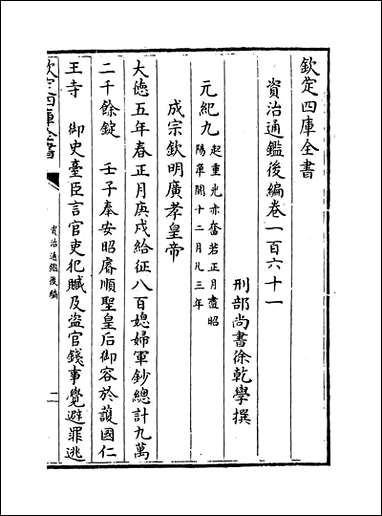 欽定四庫全書
資治通鑑後編卷一百六十一
刑部尚書徐乾學撰
元紀九起重光赤奮若正月盡昭
陽單閼十二月凡三年
成宗欽明廣孝皇帝
大德五年春正月庚戌給征八百媳婦軍鈔總計九萬
二千餘錠 壬子奉安昭睿順聖皇后御容於護國仁
王寺 御史臺臣言官吏犯贓及盜官錢事覺避罪逃
欽定四庫全書
資治通鑑後編